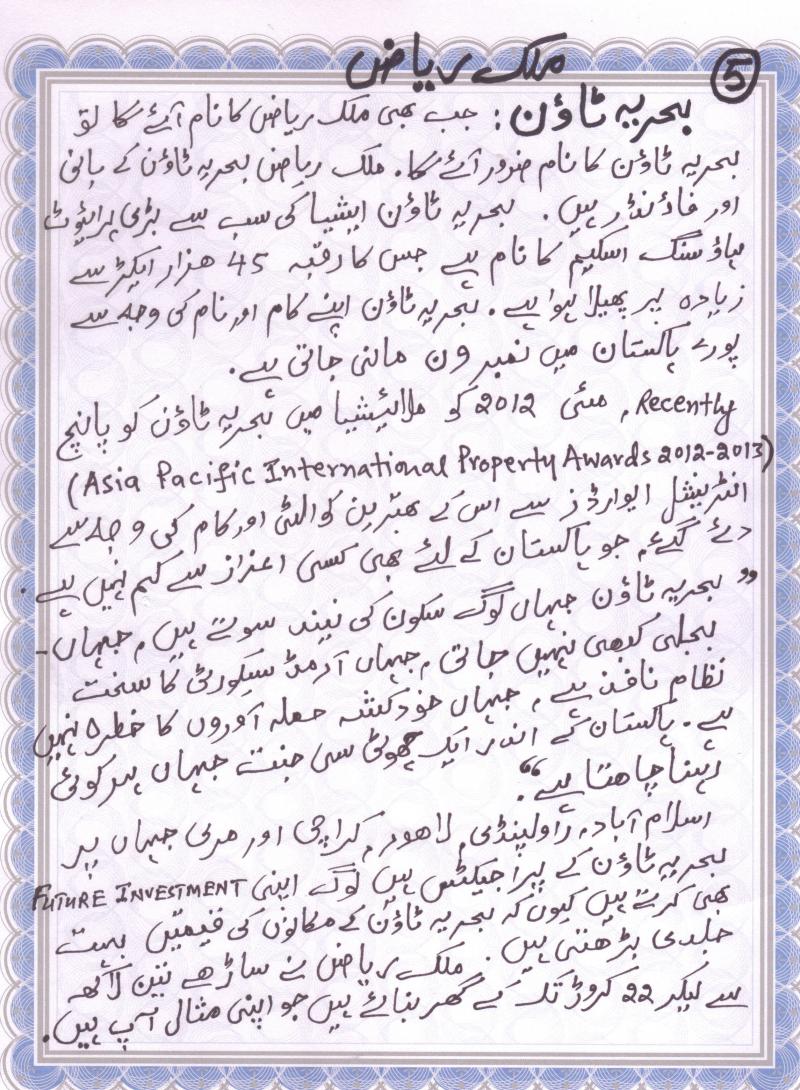 ملک ریاض
5
بحریہ ٹاؤن: جب بھی ملک ریاض کا نام آئے گا تو
بحریہ ٹاؤن کا نام ضرور آئے گا۔ ملک ریاض بحریہ ٹاؤن کے بانی
اور فاؤنڈر ہیں۔ بحریہ ٹاؤن ایشیا کی سب سے بڑی پرائیوٹ
ہاؤسنگ اسکیم کا نام ہے جس کا رقبہ 45 ھزار ایکڑ سے
زیادہ پر پھیلا ہوا ہے۔ بحریہ ٹاؤن اپنے کام اور نام کی وجہ سے
پورے پاکستان میں نمبر ون مانی جاتی ہے۔
Recently, مئی 2012 کو ملائیشیا میں بحریہ ٹاؤن کو پانچ
(Asia Pacific International Property Awards 2012-2013)
انٹرنیشنل ایوارڈز سے اس کے بھترین کوالٹی اور کام کی وجہ سے
دئے گئے، جو پاکستان کے لئے بھی کسی اعزاز سے کم نہیں ہے۔
”بحریہ ٹاؤن جہاں لوگ سکون کی نیند سوتے ہیں، جہاں-
بجلی کبھی نہیں جاتی، جہاں آرمڈ سیکورٹی کا سخت
نظام نافذ ہے، جہاں خودکش حملہ آوروں کا خطرہ نہیں
ہے۔ پاکستان کے اندر ایک چھوٹی سی جنت جہاں ہر کوئی
رہنا چاھتا ہے“۔
اسلام آباد، راولپنڈی، لاھور، کراچی اور مری جہاں پر
بحریہ ٹاؤن کے پراجیکٹس ہیں لوگ اپنی FUTURE INVESTMENT
بھی کرتے ہیں کیوں کہ بحریہ ٹاؤن کے مکانوں کی قیمتیں بہت
جلدی بڑھتی ہیں۔ ملک ریاض نے ساڑھے تین لاکھ
سے لیکر 22 کروڑ تک کے گھر بنائے ہیں جو اپنی مثال آپ ہیں۔